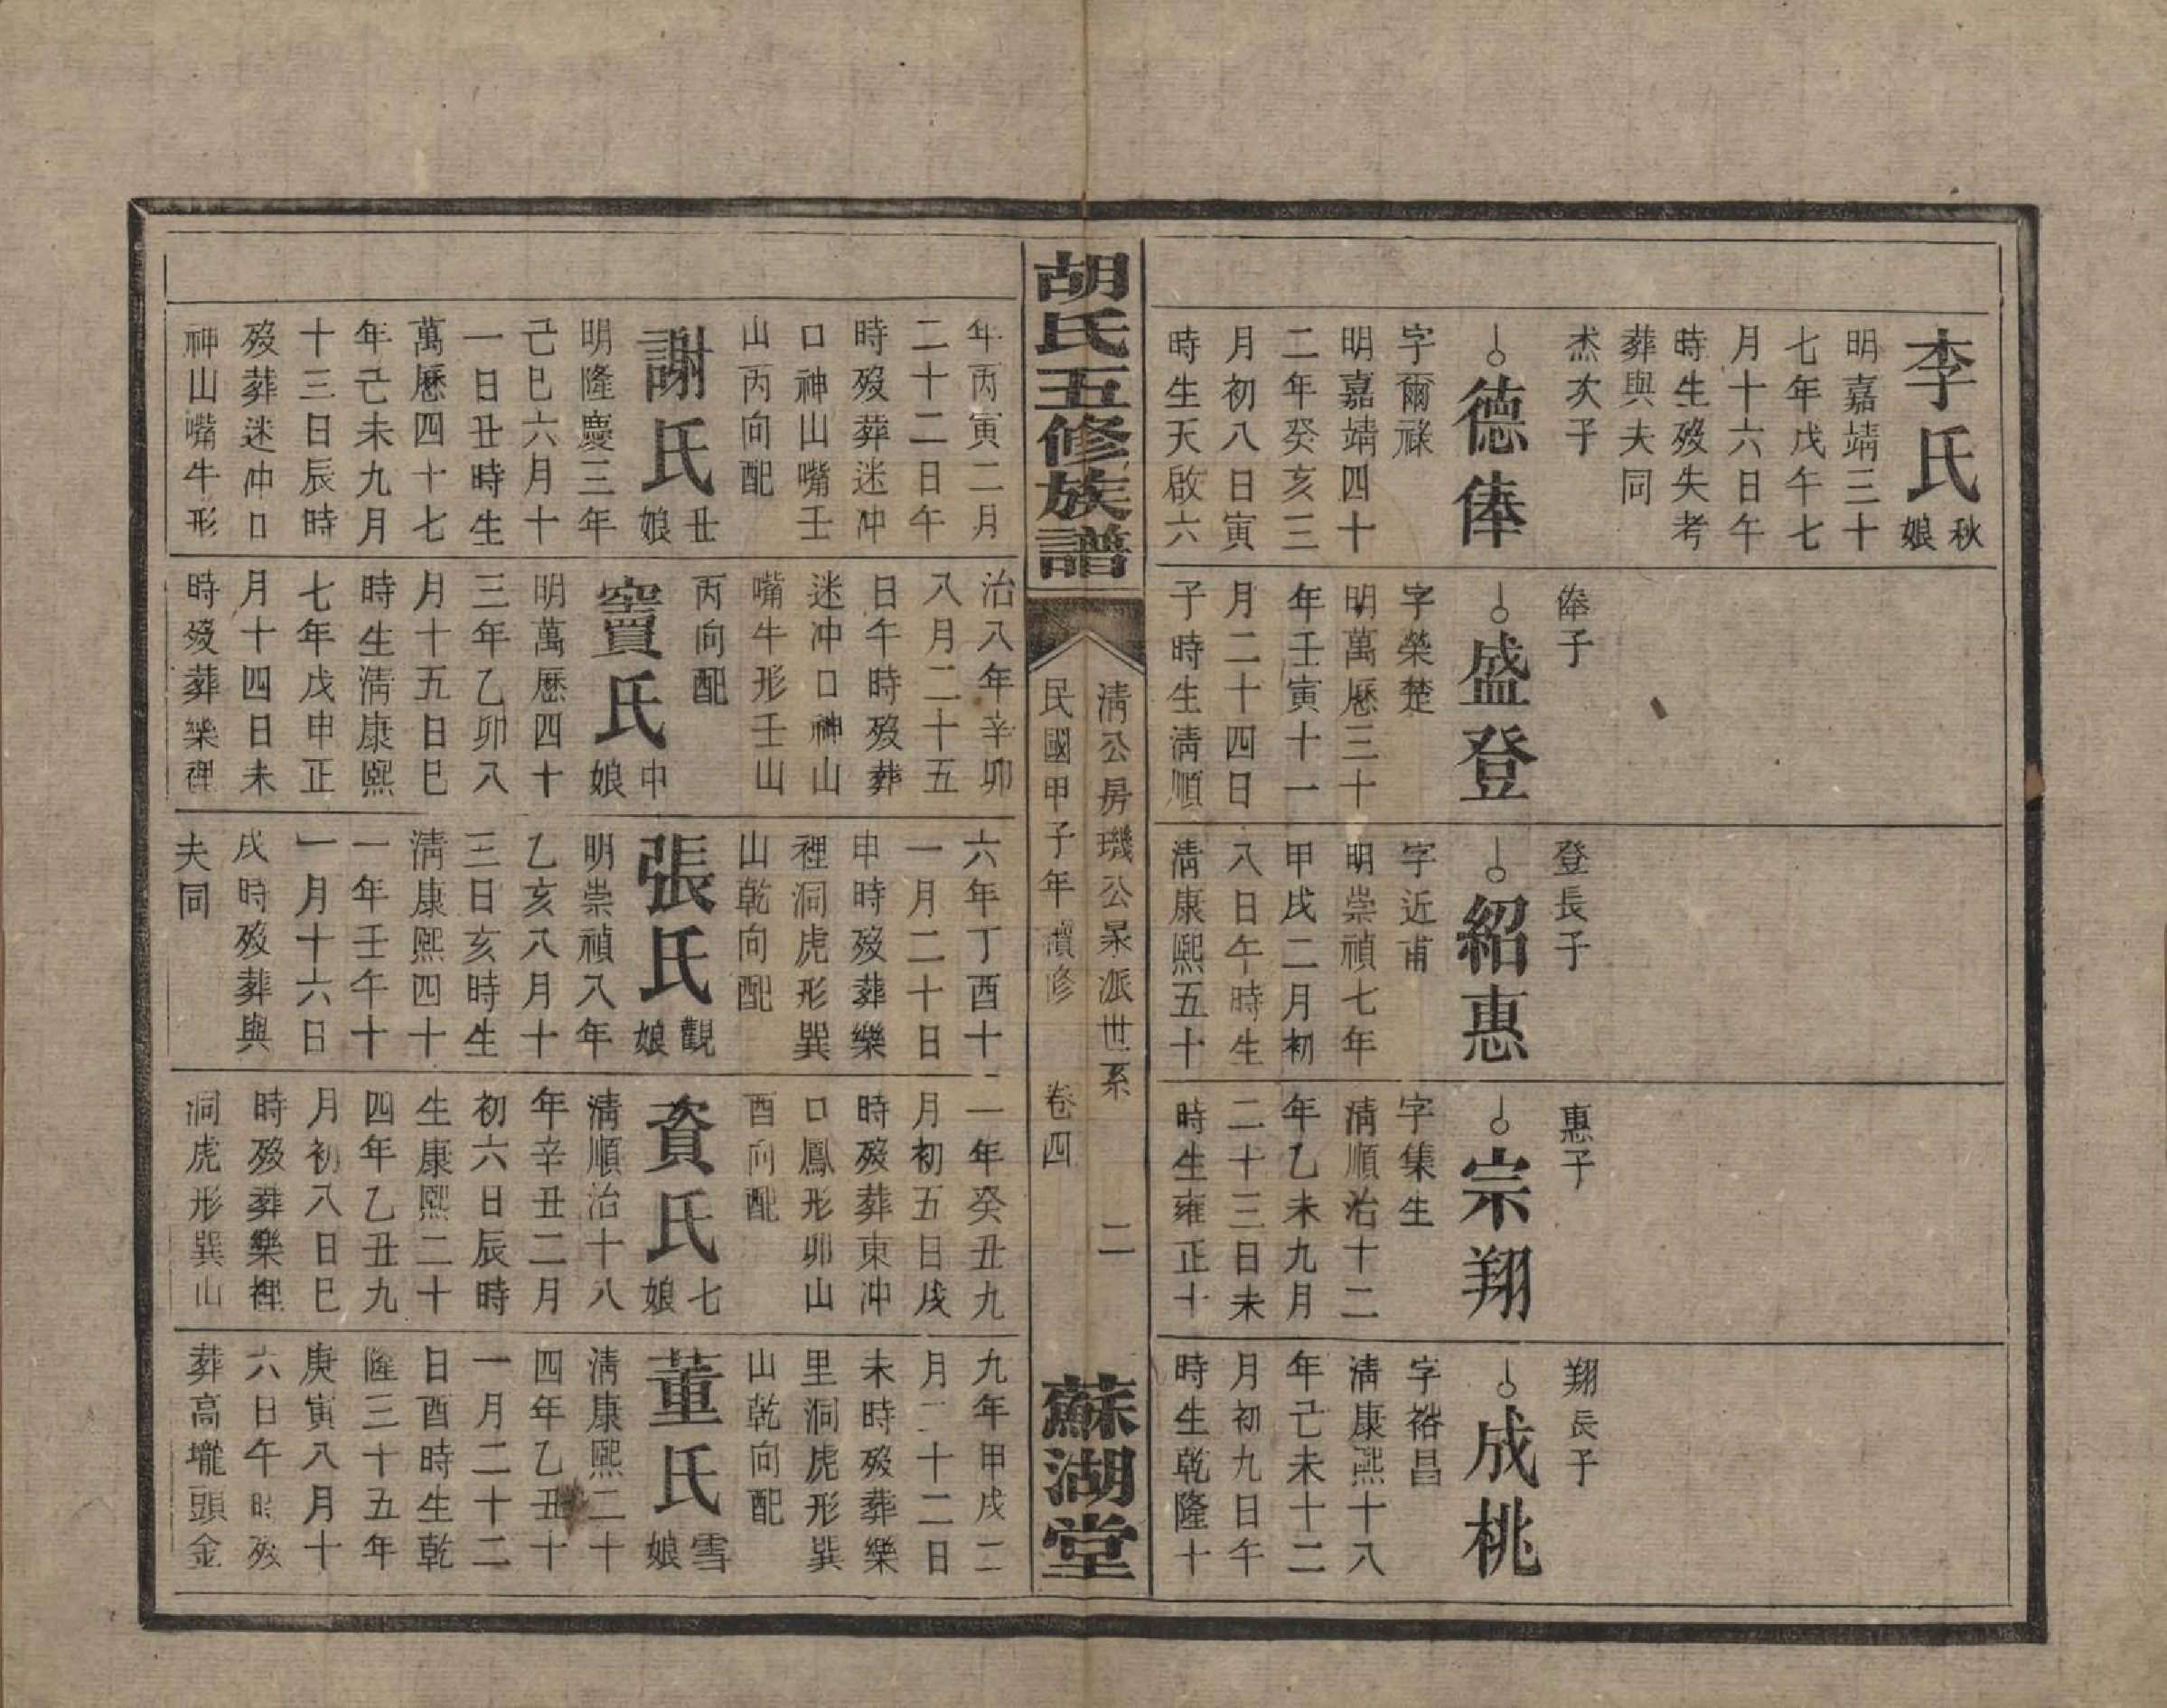 李氏秋娘
明嘉靖三十
七年戊午七
月十六日午
時生歿失考
葬與夫同
杰次子
德俸
字爾祿
明嘉靖四十
二年癸亥三
月初八日寅
時生天啟六
俸子
盛登
字榮楚
明萬曆三十
年壬寅十一
月二十四日
子時生清順
登長子
紹惠
字近甫
明崇禎七年
甲戌二月初
八日午時生
清康熙五十
惠子
宗翔
字集生
清順治十二
年乙未九月
二十三日未
時生雍正十
翔長子
成桃
字裕昌
清康熙十八
年己未十二
月初九日午
時生乾隆十
胡氏五修族譜
清公房璣公杲派世系 二
民國甲子年續修 卷四
蘇湖堂
年丙寅二月
二十二日午
時歿葬迷冲
口神山嘴壬
山丙向配
謝氏丑娘
明隆慶三年
己巳六月十
一日丑時生
萬曆四十七
年己未九月
十三日辰時
歿葬迷冲口
神山嘴牛形
治八年辛卯
八月二十五
日午時歿葬
迷冲口神山
嘴牛形壬山
丙向配
竇氏中娘
明萬曆四十
三年乙卯八
月十五日巳
時生清康熙
七年戊申正
月十四日未
時歿葬樂裡
六年丁酉十
一月二十日
申時歿葬樂
裡洞虎形巽
山乾向配
張氏觀娘
明崇禎八年
乙亥八月十
三日亥時生
清康熙四十
一年壬午十
一月十六日
戌時歿葬與
夫同
一年癸丑九
月初五日戌
時歿葬東冲
口鳳形卯山
酉向配
資氏七娘
清順治十八
年辛丑二月
初六日辰時
生康熙二十
四年乙丑九
月初八日巳
時歿葬樂裡
洞虎形巽山
九年甲戌二
月二十二日
未時歿葬樂
里洞虎形巽
山乾向配
董氏雪娘
清康熙二十
四年乙丑十
一月二十二
日酉時生乾
隆三十五年
庚寅八月十
六日午時歿
葬高壠頭金